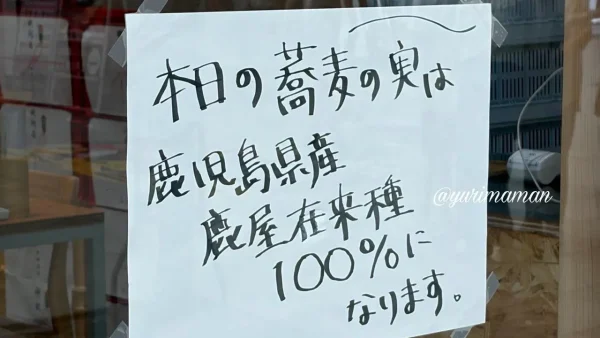 本日の蕎麦の実は
鹿児島県産
鹿屋在来種
100%に
なります。
@yurimaman